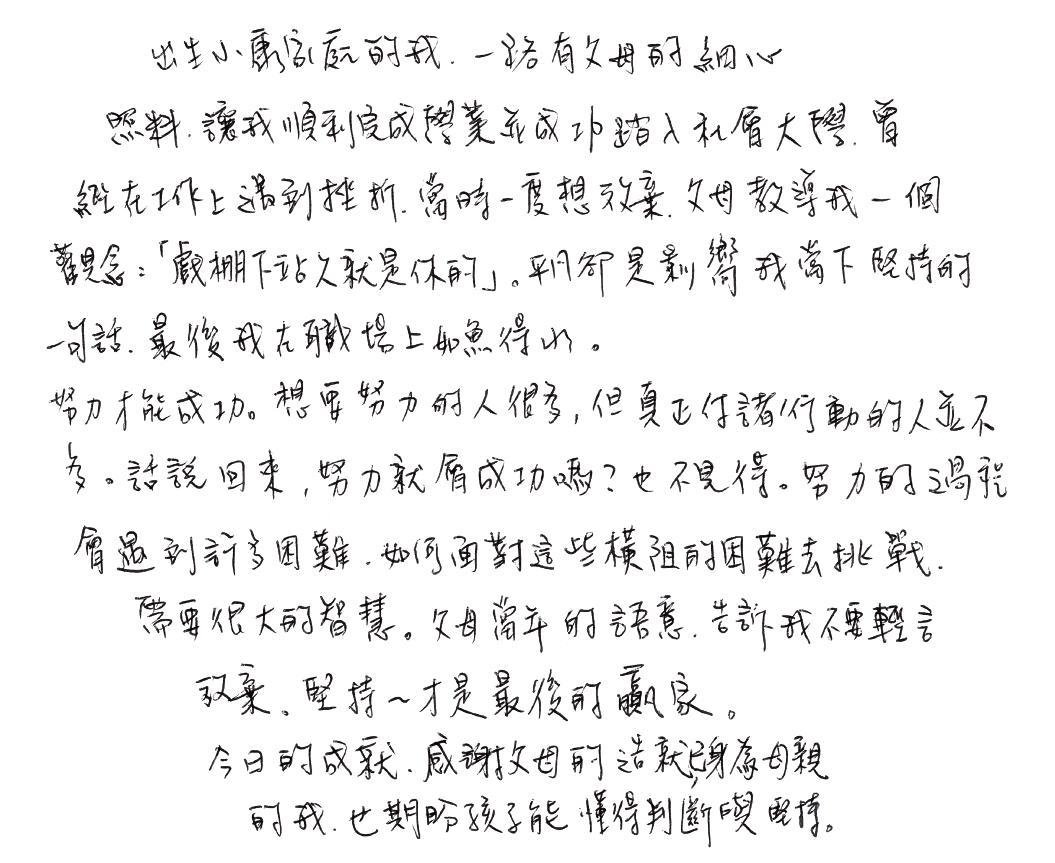 出生小康家庭的我.一路有父母的細心
照料.讓我順利完成學業並成功踏入社會大學.曾
經在工作上遇到挫折.當時一度想放棄.父母教導我一個
觀念：「戲棚下站久就是你的」。平凡卻是影響我當下堅持的
一句話.最後我在職場上如魚得水。
努力才能成功。想要努力的人很多,但真正付諸行動的人並不
多。話說回來,努力就會成功嗎？也不見得。努力的過程
會遇到許多困難.如何面對這些橫阻的困難去挑戰.
需要很大的智慧。父母當年的語意.告訴我不要輕言
放棄、堅持~才是最後的贏家。
今日的成就.感謝父母的造就,身為母親
的我.也期盼孩子能懂得判斷與堅持。